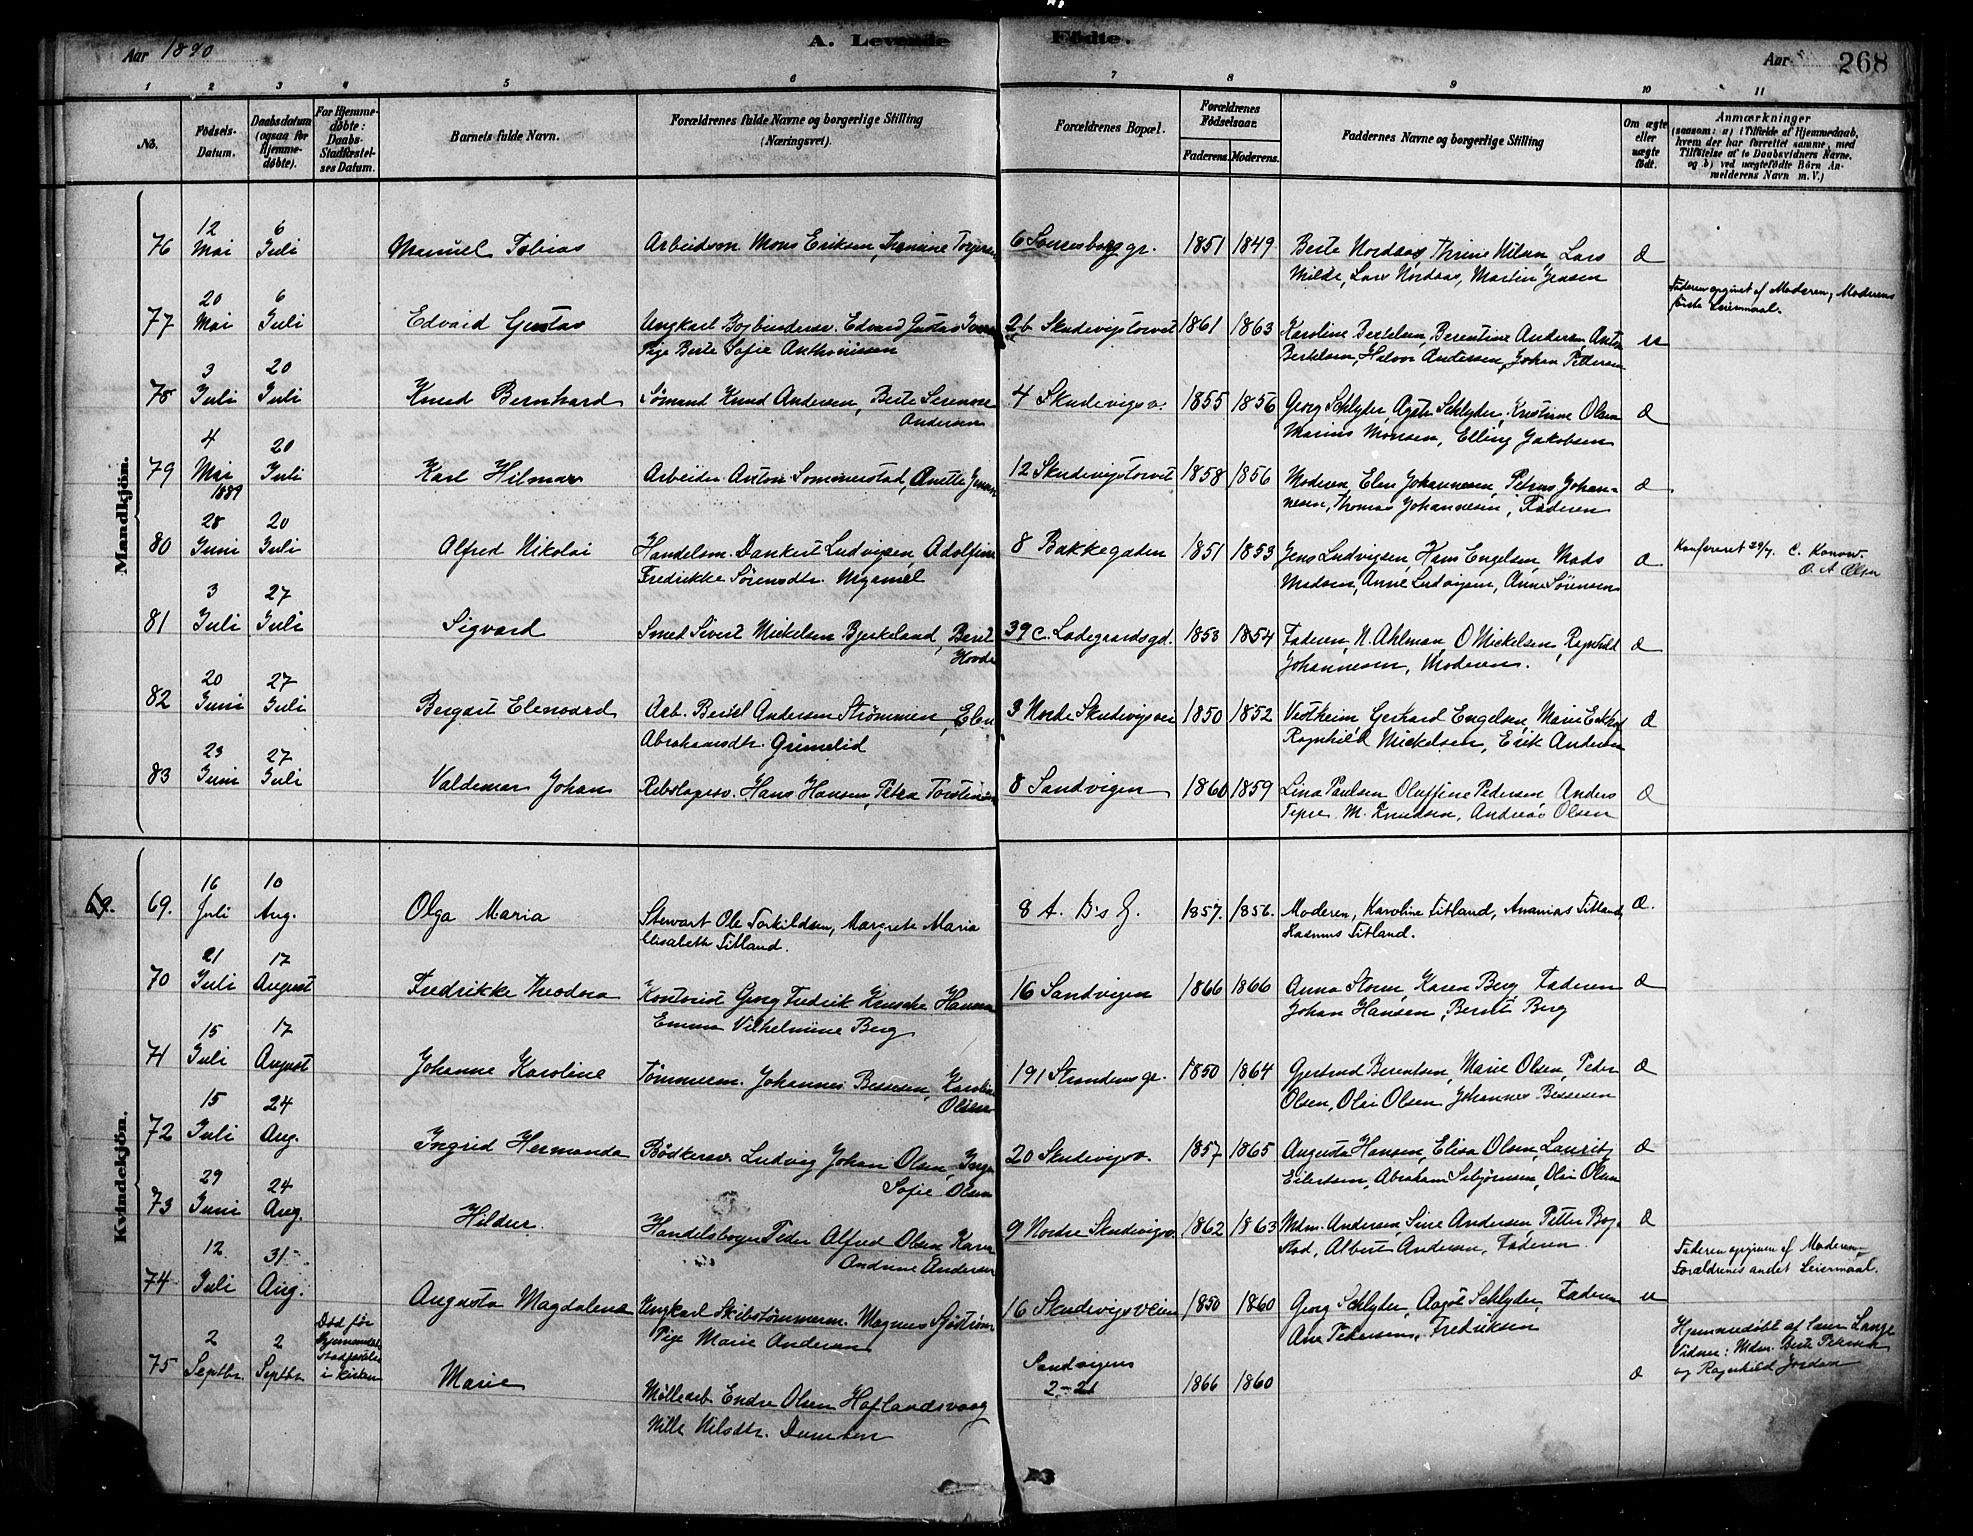 Aar 1890
A. Levende Fødte.
Aar
268
1 2 3 4 5 6 7 8 9 10 11
No.
Fødsels-Datum.
Daabsdatum (ogsaa for Hjemmedøbte).
For Hjemmedøbte: Daabs-Stadfæstelses Datum.
Barnets fulde Navn.
Forældrenes fulde Navne og borgerlige Stilling (Næringsvei).
Forældrenes Bopæl.
Forældrenes Fødselsaar.
Faderens. Moderens.
Faddernes Navne og borgerlige Stilling
Om ægte eller uægte født.
Anmærkninger
(saasom: a) i Tilfælde af Hjemmedaab, hvem der har forrettet samme, med Tilføielse af to Daabsvidners Navne, og b) ved uægtefødte Børn Anmelderens Navn m. V.)
Mandkjøn.
76 12 Mai 6 Juli Manuel Tobias Arbeidsm. Mons Eriksen, 6 1851 1849 Berte Nordaas, Thrine Nilsen Lars
Milde, Lars Nordaas, Martin Jensen
77 20 Mai 6 Juli Edvard Gustav Ungkarl Edvard Gustav 2b Skudevigstorvet 1861 1863 Karoline Bertelsen, Berentine Andersen, Anton u Faderen opgivet af Moderen, Moderens
første Leiermaal.
Pige Berte Sofie Anthonisen Bertelsen, Halvor Andersen, Johan Pettersen
78 3 Juli 20 Juli Knud Bernhard Sømand Knud Andersen, Berte Serene 4 Skudevigsv. 1855 1856 Georg Schlyter, Agate Schlyter, Kristine Olsen
Andersen Marius Monsen, Elling Jakobsen
79 4 Mai 1889 20 Juli Karl Hilmar Arbeider Anton Sommerstad, Anette Jensen 12 Skudevigstorvet 1858 1856 Moderen, Elen Johannesen, Petrus Johan-
nesen, Thomas Johannesen, Faderen
80 28 Juni 20 Juli Alfred Nikolai Handelsm. Dankert Ludvigsen, Adolfine 8 Bakkegaden 1851 1853 Jens Ludvigsen, Hans Engelsen, Mads Konfereret 29/7. C. Konow
O. A. Olsen
Fredrikke Sørensdtr. Myrmel Madsen, Anne Ludvigsen, Anne Sørensen
81 3 Juli 27 Juli Sigvard Smed Sivert Mickelsen Bjerkeland, Berit 39c. Ladegaardsgd. 1853 1854 Faderen, N. Ahlman, O Mickelsen, Ragnhild
Hovde Johannesen, Moderen.
82 20 Juni 27 Juli Arb. Andersen Strømmen, Elen 3 Nordre Skudevigsvei 1850 1852 Vestheim, Gerhard Engelsen, Marie
Abrahamsdtr. Grimelid Ragnhild Mickelsen, Erik Andersen
83 23 Juni 27 Juli Valdemar Johan Rebslagersv. Hans Hansen, Petra Torstensen 8 Sandvigen 1860 1859 Lina Paulsen Oluffine Pedersen Anders
M. Knudsen, Andreas Olsen
Kvindekjøn.
69.
69. 16 Juli 10 Aug. Olga Maria Stewart Ole Torkildsen, Margrete Maria 8 A. B's G. 1857. 1856. Moderen, Karoline Titland, Ananias Titland,
Elisabeth Titland. Rasmus Titland.
70 21 Juli 17 August Fredrikke Theodora Kontorist Georg Fredrik Hansen 16 Sandvigen 1866 1866 Anna Storm, Karen Berg, Faderen
Emma Vilhelmine Berg Johan Hansen, Bernt Berg
71 15 Juli 17 August Johanne Karoline Tømmerm. Johannes Bessesen, Karoline 191 Strandens gr. 1850 1864 Gjertrud Berentsen, Marie Olsen, Peder
Olsen Olsen, Olai Olsen Johannes Bessesen
72 15 Juli 24 Aug. Ingrid Hermanda Bødkersv. Ludvig Johan Olsen, Inga 20 Skudevigsv. 1857 1865 Augusta Hansen, Elisa Olsen, Lauritz
Sofie Olsen Eilertsen, Abraham Olai Olsen
73 29 Juni 24 Aug. Hildur. Peder Alfred Olsen Karen 9 Nordre Skudevigsv. 1862 1863 Mdm. Andersen, Sine Andersen, Petter Bog-
Andrine Andersen stad, Albert Andersen, Faderen
74 12. Juli 31 Aug. Augusta Magdalena Ungkarl Skibstømmerm. Magnus Sjøstrøm 16 Skudevigsveien 1850 1860 Georg Schlyter, Agate Schlyter, Faderen u Faderen opgiven af Moderen,
Forældrenes andet Leiermaal.
Pige Marie Andersen Ane Petersen, Fredriksen
75 2 Septbr. 2 Septbr. Død før i Kirken Marie Møllearb. Endre Olsen Haflandsvaag Sandvigen 2-21 1866 1860 Hjemmedøbt af Lange
Vidner: Mdm. Berte Petersen
og Ragnhild Jordan
Nille Nilsdtr.